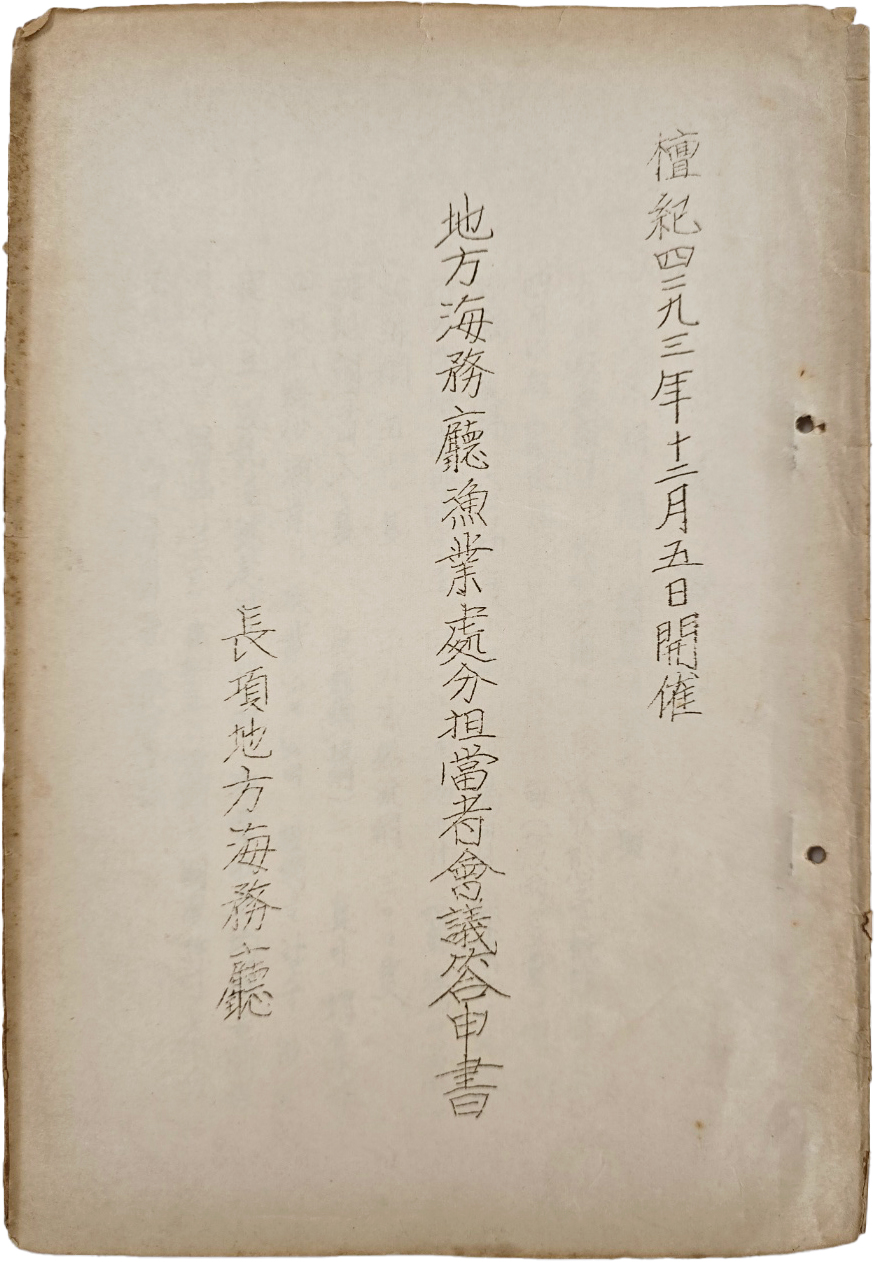 檀紀四二九三年十二月五日開催
地方海務廳漁業處分担當者會議答申書
長項地方海務廳